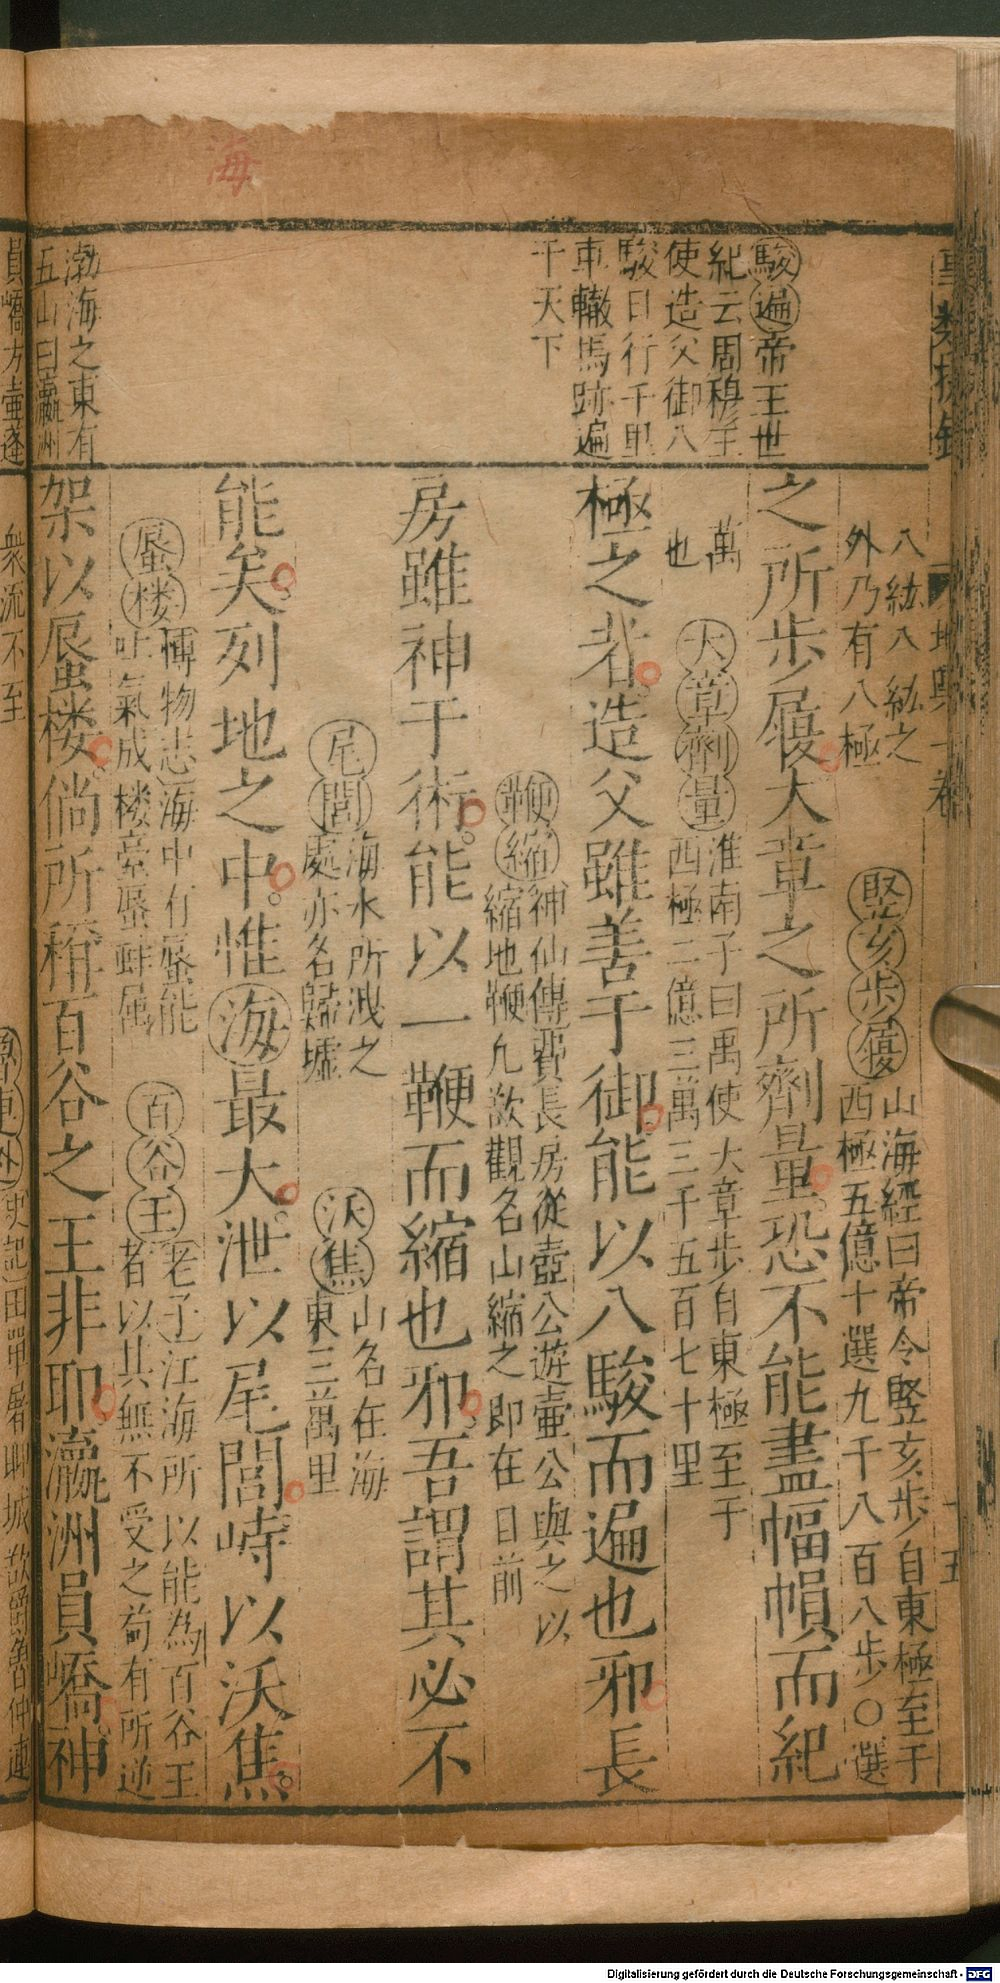 八紘八紘之
外乃有八極
竪亥步履
山海經曰帝令竪亥步自東極至于
西極五億十選九千八百八步○選
之所步履大章之所劑量恐不能盡幅幀而紀
萬
也
大章劑量
淮南子曰禹使大章步自東極至于
西極二億三萬三千五百七十里
極之者造父雖善于御能以八駿而遍也邪長
鞭縮
神仙傳費長房從壺公遊壷公與之以
縮地鞭凢欲觀名山縮之即在目前
房雖神于術能以一鞭而縮也邪吾謂其必不
尾閭
海水所洩之
處亦名歸墟
沃焦
山名在海
東三萬里
能矣列地之中惟海最大泄以尾閭峙以沃焦
蜃楼
博物志海中有蜃能
吐氣成楼臺蜃蚌属
百谷王
老子江海所以能為百谷王
者以其無不受之苟有所逆
架以蜃楼倘所稱百谷之王非耶瀛洲員嶠神
駿遍帝王世
紀云周穆王
使造父御八
駿日行千里
車轍馬跡遍
于天下
渤海之東有
五山曰瀛洲
員嶠方壷蓬
海
衆流不至
史記田單屠聊城欲爵魯仲連
十五
Digitalisierung gefördert durch die Deutsche Forschungsgemeinschaft - DFG